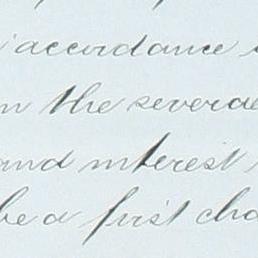 accordance
the several
and interest
be a first